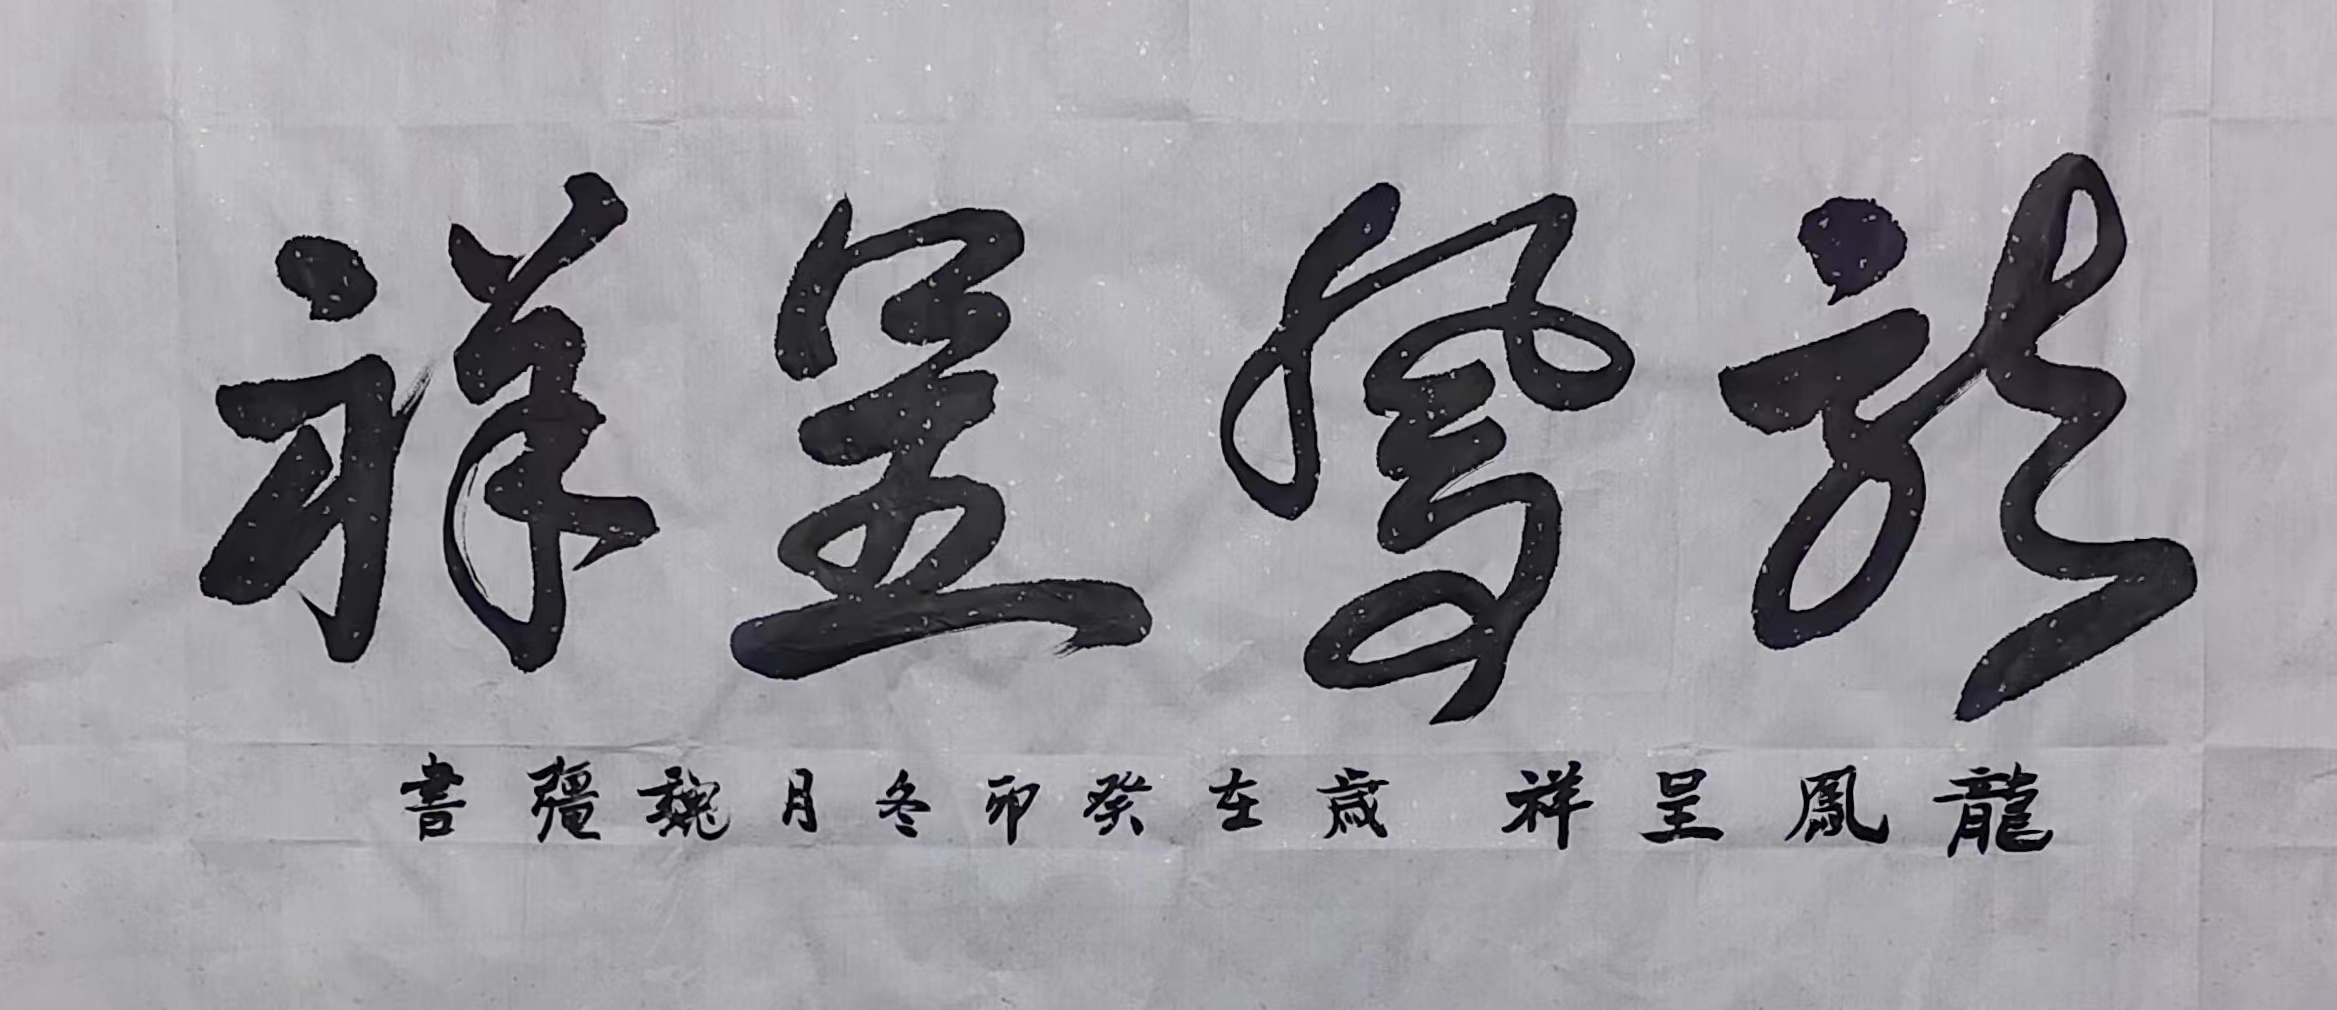 龍鳳呈祥
龍鳳呈祥 歲在癸卯冬月魏彊書